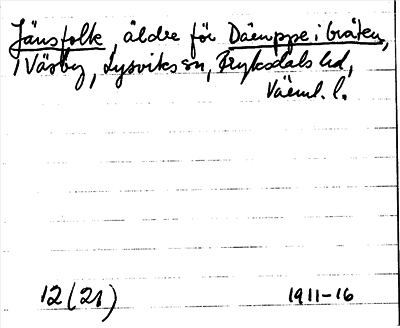 Jänsfolk, äldre för Däruppe i bråten,
i Väsby, Lysviks sn, Fryksdals hd,
Värml. l.
12 (21) 1911-16